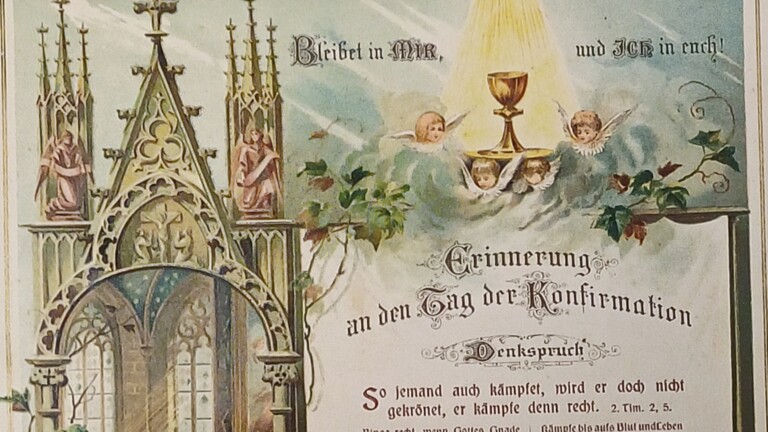 Bleibet in MIR, und ICH in euch!
Erinnerung
an den Tag der Konfirmation
Denkspruch
So jemand auch kämpfet, wird er doch nicht
gekrönet, er kämpfe denn recht. 2. Tim. 2, 5.
Ringe recht, wenn Gottes Gnade Kämpfe bis aufs Blut und Leben